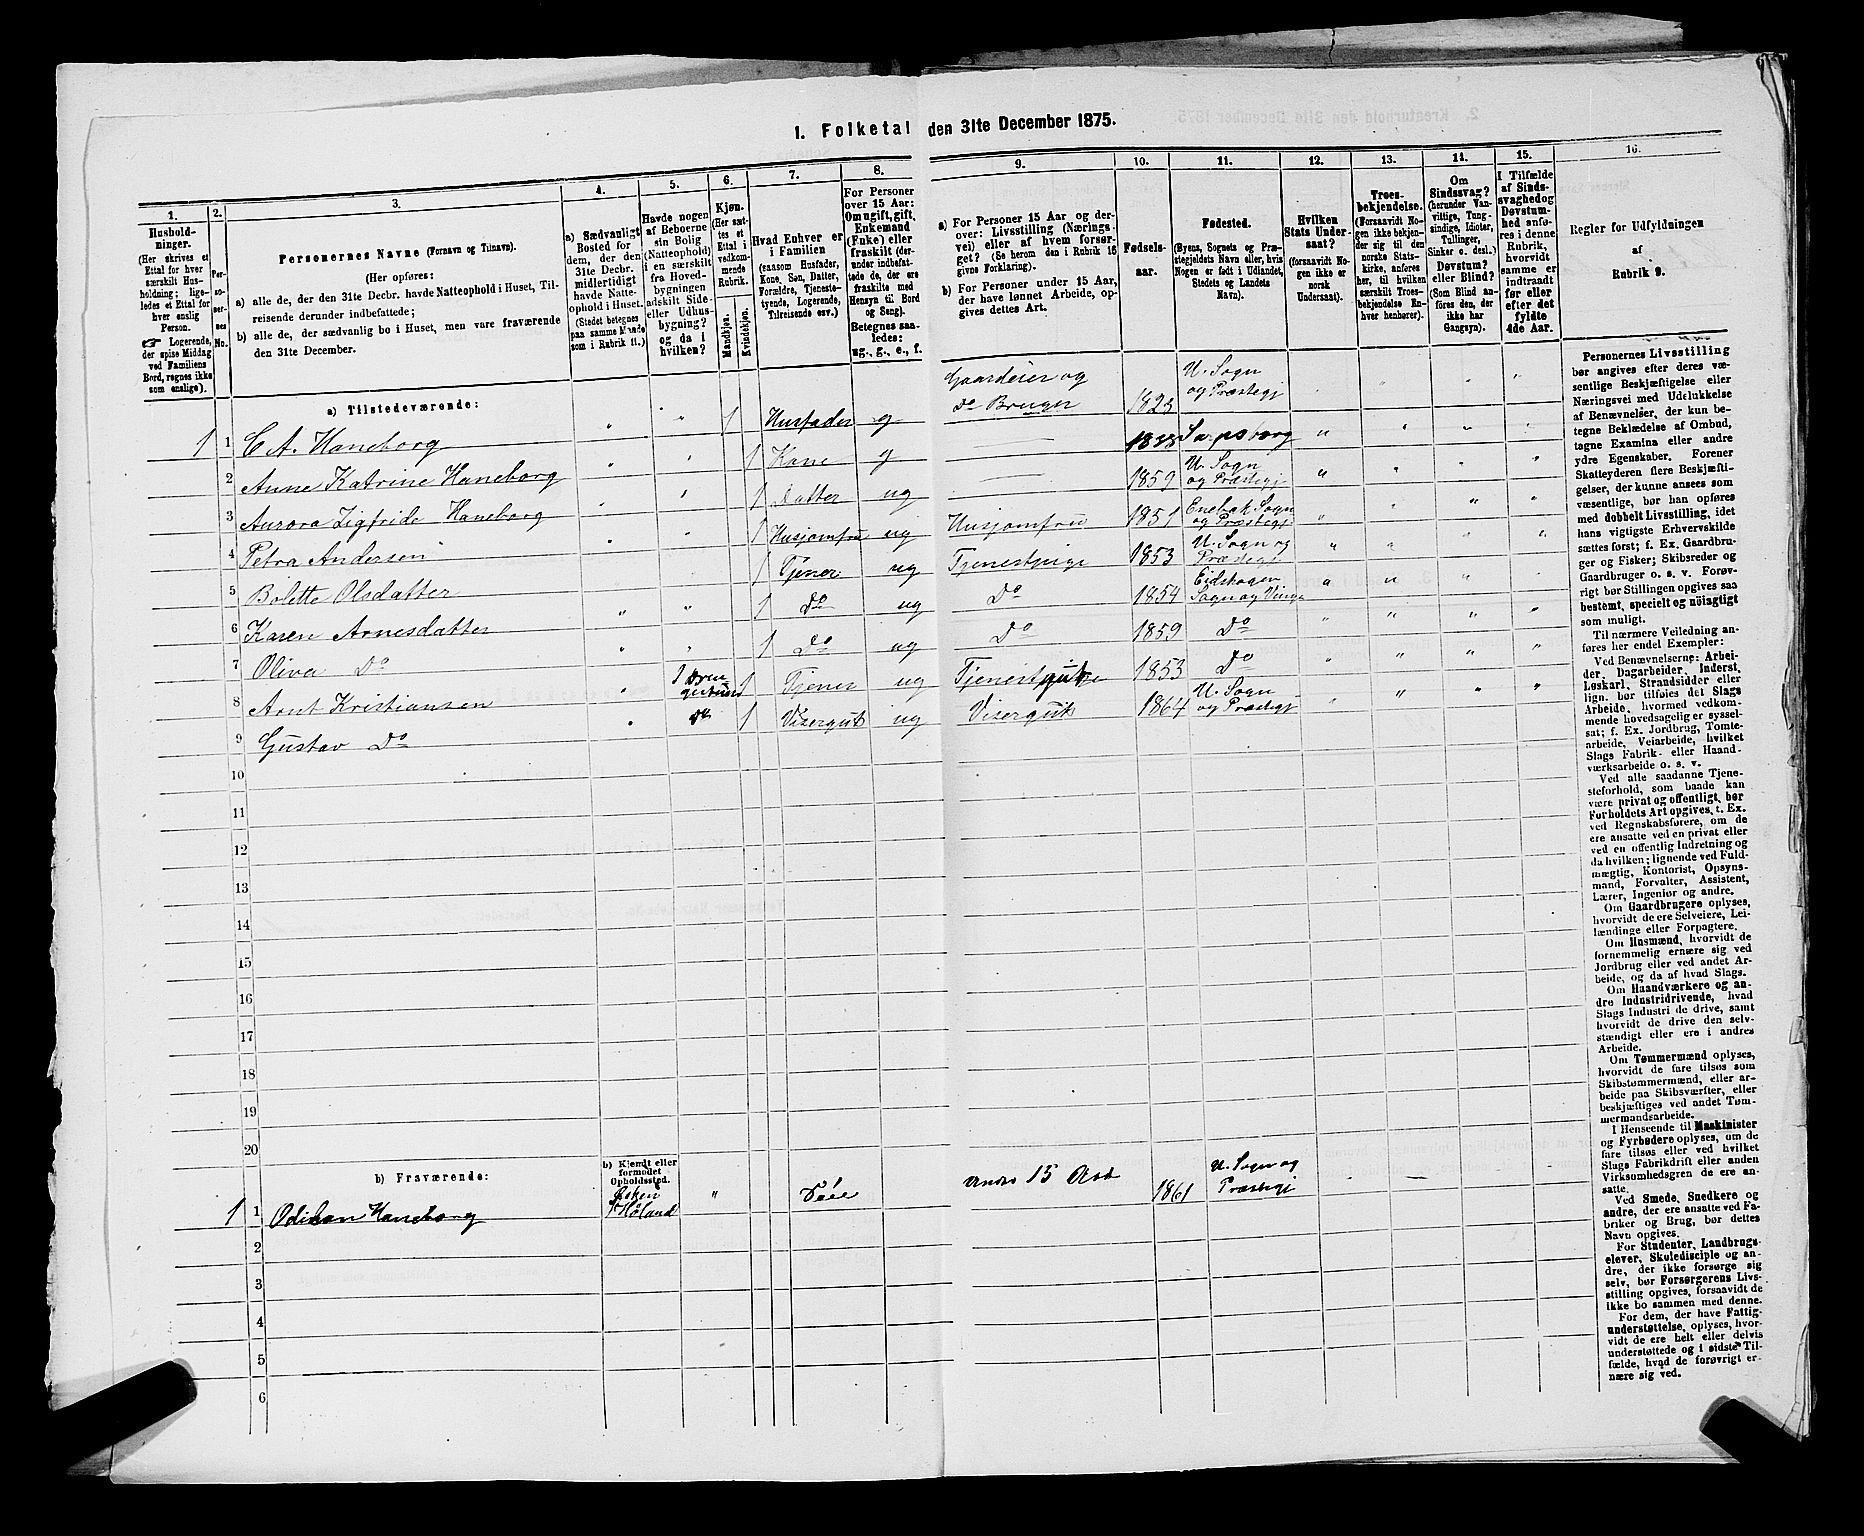 1. Folketal den 31te December 1875.
1.
Husholdninger.
(Her skrives et
Ettal for hver
særskilt Husholdning;
ligeledes et Ettal for
hver enslig
Person.
Logerende,
der spise Middag
ved Familiens
Bord, regnes ikke
som enslige).
2.
Personernes
No.
3.
Personernes Navne (Fornavn og Tilnavn).
(Her opføres:
a) alle de, der den 31te Decbr. havde Natteophold i Huset, Tilreisende
derunder indbefattede;
b) alle de, der sædvanlig bo i Huset, men vare fraværende
den 31te December.
4.
a) Sædvanligt
Bosted for
dem, der den
31te Decbr.
midlertidigt
havde Natteophold
i Huset.
(Stedet betegnes
paa samme Maade
som i Rubrik 11.)
5.
Havde nogen
af Beboerne
sin Bolig
(Natteophold)
i en særskilt
fra Hovedbygningen
adskilt Side-
eller Udhusbygning?
og da i
hvilken?
6.
Kjøn.
(Her sættes
et Ettal i
vedkommende
Rubrik.
Mandkjøn.
Kvindekjøn.
7.
Hvad Enhver er
i Familien
(saasom Husfader,
Kone, Søn, Datter,
Forældre, Tjenestetyende,
Logerende,
Tilreisende osv.)
8.
For Personer
over 15 Aar:
Om ugift, gift,
Enkemand
(Enke) eller
fraskilt (derunder
indbefattede
de, der ere
fraskilte med
Hensyn til Bord
og Seng).
Betegnes saaledes:
ug., g., e., f.
9.
a) For Personer 15 Aar og derover:
Livsstilling (Næringsvei)
eller af hvem forsørget.
(Se herom den i Rubrik 16
givne Forklaring).
b) For Personer under 15 Aar,
der have lønnet Arbeide, opgives
dettes Art.
10.
Fødselsaar.
11.
Fødested.
(Byens, Sognets og Præstegjeldets
Navn eller, hvis
Nogen er født i Udlandet,
Stedets og Landets
Navn).
12.
Hvilken
Stats Undersaat?
(forsaavidt Nogen
ikke er
norsk
Undersaat).
13.
Troesbekjendelse.
(Forsaavidt Nogen
ikke bekjender
sig til den
norske Statskirke,
anføres
her, til hvilken
særskilt Troesbekjendelse
Enhver
henhører).
14.
Om
Sindssvag?
(herunder Vanvittige,
Tungsindige,
Idioter,
Tullinger,
Sinker o. desl.)
Døvstum?
eller Blind?
(Som Blind anføres
den, der
ikke har
Gangsyn).
15.
I Tilfælde
af Sindssvaghed
og
Døvstumhed
anføres
i denne
Rubrik,
hvorvidt
samme er
indtraadt
før eller
efter det
fyldte
4de Aar.
16.
Regler for Udfyldningen
af
Rubrik 9.
a) Tilstedeværende:
1 1 C A. Haneborg " " 1 Husfader g Gaardeier og do Bruger 1823 U. Sogn og Præstegj
2 Anne Katrine Haneborg " " 1 Kone g — 1833 Sarpsborg "
3 Aurora Zigfride Haneborg " " 1 Datter ug — 1859 U. Sogn og Præstegj "
4 Petra Andersen " " 1 Husjomfru ug Husjomfru 1851 Enebak Sogn og Præstegj "
5 Bolette Olsdatter 1 Tjener ug Tjenestpige 1853 U. Sogn og Præstegj "
6 Karen Arnesdatter " " 1 Do ug Do 1854 Eidskogen Sogn og Vinge
7 Oliva Do " " 1 Do ug Do 1859 Do "
8 Arnt Kristiansen " 1 Drengestue 1 Tjener ug Tjenestgut 1853 Do "
9 Gustav Do " do 1 Visergut ug Visergut 1864 U. Sogn og Præstegj "
10
11
12
13
14
15
16
17
18
19
20
b) Fraværende:
b) Kjendt eller
formodet
Opholdssted.
1 1 Haneborg Høland " under 15 Aar 1861 U. Sogn og Præstegj
2
3
4
5
6
Personernes Livsstilling
bør angives efter deres væsentlige
Beskjæftigelse eller
Næringsvei med Udelukkelse
af Benævnelser, der kun betegne
Beklædelse af Ombud,
tagne Examina eller andre
ydre Egenskaber. Forener
Skatteyderen flere Beskjæftigelser,
der kunne ansees som
væsentlige, bør han opføres
med dobbelt Livsstilling, idet
hans vigtigste Erhvervskilde
sættes først; f. Ex. Gaardbruger
og Fisker; Skibsreder og
Gaardbruger o. s. v. Forøvrigt
bør Stillingen opgives saa
bestemt, specielt og nøiagtigt
som muligt.
Til nærmere Veiledning anføres
her endel Exempler:
Ved Benævnelserne: Arbeider,
Dagarbeider, Inderst,
Løskarl, Strandsidder eller
lign. bør tilføies det Slags
Arbeide, hvormed vedkommende
hovedsagelig er sysselsat;
f. Ex. Jordbrug, Tomtearbeide,
Veiarbeide, hvilket
Slags Fabrik- eller Haandværksarbeide
o. s. v.
Ved alle saadanne Tjenesteforhold,
som baade kan
være privat og offentligt, bør
Forholdets Art opgives, t. Ex.
ved Regnskabsførere, om de
ere ansatte ved en privat eller
ved en offentlig Indretning og
da hvilken; lignende ved Fuldmægtig,
Kontorist, Opsynsmand,
Forvalter, Assistent,
Lærer, Ingeniør og andre.
Om Gaardbrugere oplyses,
hvorvidt de ere Selveiere, Leilændinge
eller Forpagtere.
Om Husmænd, hvorvidt de
fornemmelig ernære sig ved
Jordbrug eller ved andet Arbeide,
og da af hvad Slags.
Om Haandværkere og andre
Industridrivende, hvad
Slags Industri de drive, samt
hvorvidt de drive den selvstændigt
eller ere i andres
Arbeide.
Om Tømmermænd oplyses,
hvorvidt de fare tilsøs som
Skibstømmermænd, eller arbeide
paa Skibsværfter, eller
beskjæftiges ved andet Tømmermandsarbeide.
I Henseende til Maskinister
og Fyrbødere oplyses, om de
fare tilsøs eller ved hvilket
Slags Fabrikdrift eller anden
Virksomhedsgren de ere ansatte.
Ved Smede, Snedkere og
andre, der ere ansatte ved Fabriker
og Brug, bør dettes
Navn opgives.
For Studenter, Landbrugselever,
Skoledisciple og andre,
der ikke forsørge sig
selv, bør Forsørgerens Livsstilling
opgives, forsaavidt de
ikke bo sammen med denne.
For dem, der have Fattigunderstøttelse,
oplyses, hvorvidt
de ere helt eller delvis
understøttede og i sidste Tilfælde,
hvad de forøvrigt ernære
sig ved.